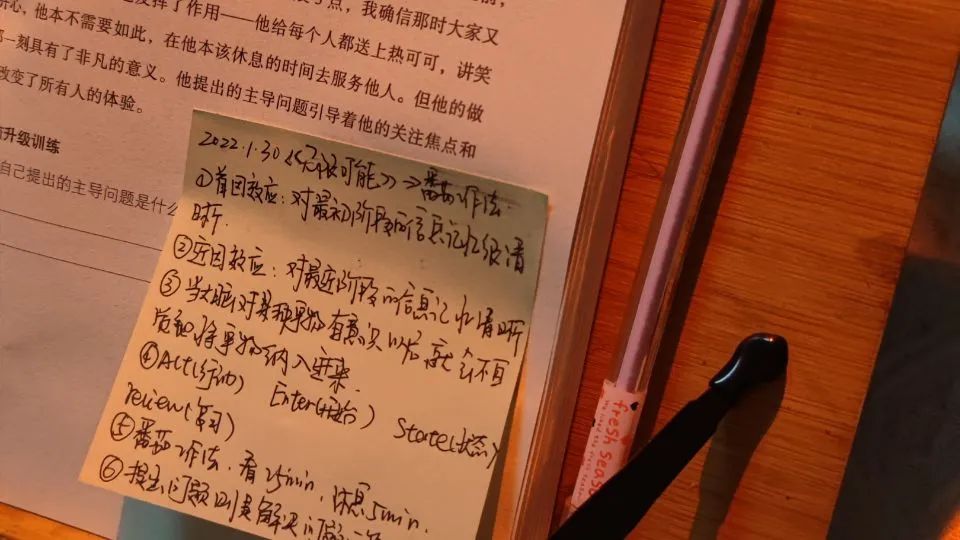 了点，我确信那时大家又
发挥了作用——他给每个人都送上热可可，讲笑
心，他本不需要如此，在他本该休息的时间去服务他人。但他的做
一刻具有了非凡的意义。他提出的主导问题引导着他的关注焦点和
改变了所有人的体验。
升级训练
自己提出的主导问题是什么
2022.1.30《无限可能》→番茄工作法.
①首因效应：对最初阶段的信息记忆很清
晰.
②近因效应：对最近阶段的信息记忆清晰
③当大脑对某种事物有意识以后就会不自
质和将事物纳入进来.
④Act(行动) Enter(开始) State(状态)
review(复习)
⑤番茄工作法.看25min.休息5min.
⑥提出问题则是解决问题的一
fresh seaso